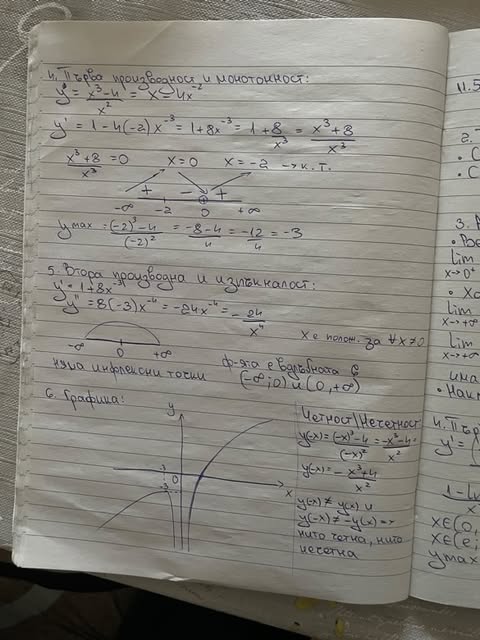 4. Първа производност и монотонност:
y = x³-4/x² = x-4x⁻²
y' = 1-4(-2)x⁻³ = 1+8x⁻³ = 1+8/x³ = x³+8/x³
x³+8/x³ = 0 x=0 x=-2 → к.т.
+ - +
-∞ -2 0 +∞
ymax = (-2)³-4/(-2)² = -8-4/4 = -12/4 = -3
5. Втора производна и изпъкналост:
y' = 1+8x⁻³
y'' = 8(-3)x⁻⁴ = -24x⁻⁴ = -24/x⁴
x е полож. за ∀x≠0
-∞ 0 +∞
няма инфлексни точки
ф-ята е вдлъбната в
(-∞;0) и (0,+∞)
6. Графика:
y
0
-3
x
Четност|Нечетност
y(-x) = (-x)³-4/(-x)² = -x³-4/x² =
y(-x) = -x³+4/x²
y(-x) ≠ y(x) и
y(-x) ≠ -y(x) =>
нито четна, нито
нечетна
11.5
2.
• С
• С
3.
lim
x→0⁺
lim
x→+∞
lim
x→+∞
има
4. Пър
y' =
x∈(0,
x∈(e;
ymax